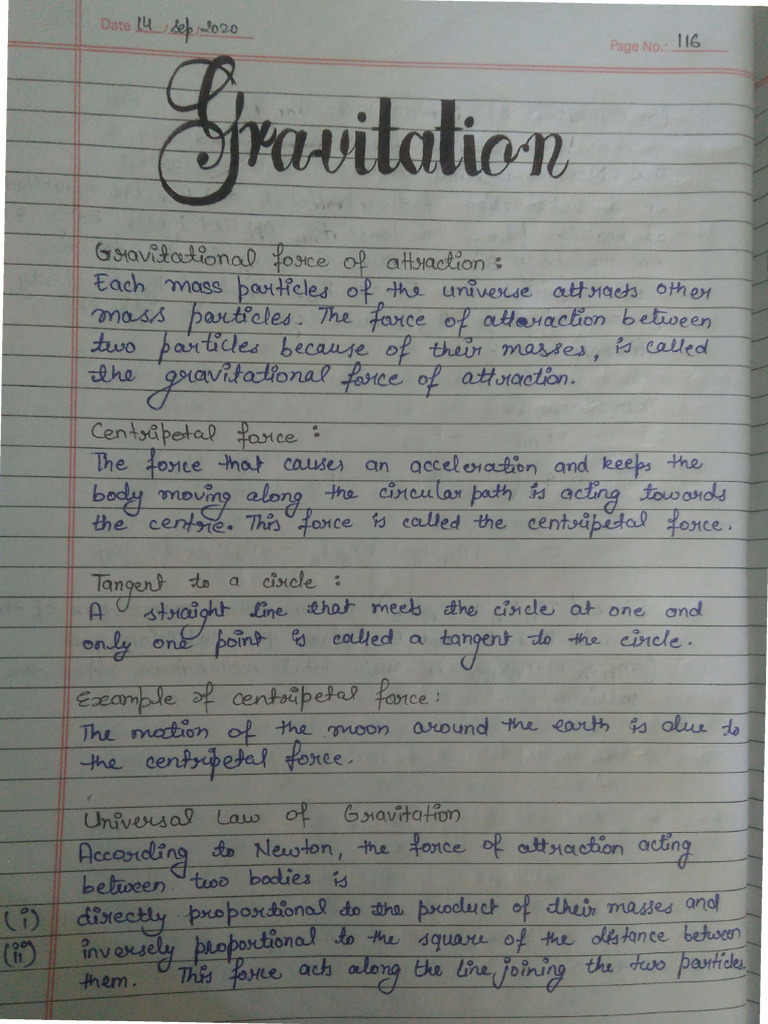 Date 14 / Sep / 2020
Page No.: 116
Gravitation
Gravitational force of attraction :
Each mass particles of the universe attracts other
mass particles. The force of attraction between
two particles because of their masses, is called
the gravitational force of attraction.
Centripetal force :
The force that causes an acceleration and keeps the
body moving along the circular path is acting towards
the centre. This force is called the centripetal force.
Tangent to a circle :
A straight line that meets the circle at one and
only one point is called a tangent to the circle.
Example of centripetal force :
The motion of the moon around the earth is due to
the centripetal force.
Universal Law of Gravitation
According to Newton, the force of attraction acting
between two bodies is
(i) directly proportional to the product of their masses and
(ii) inversely proportional to the square of the distance between
them. This force acts along the line joining the two particles.